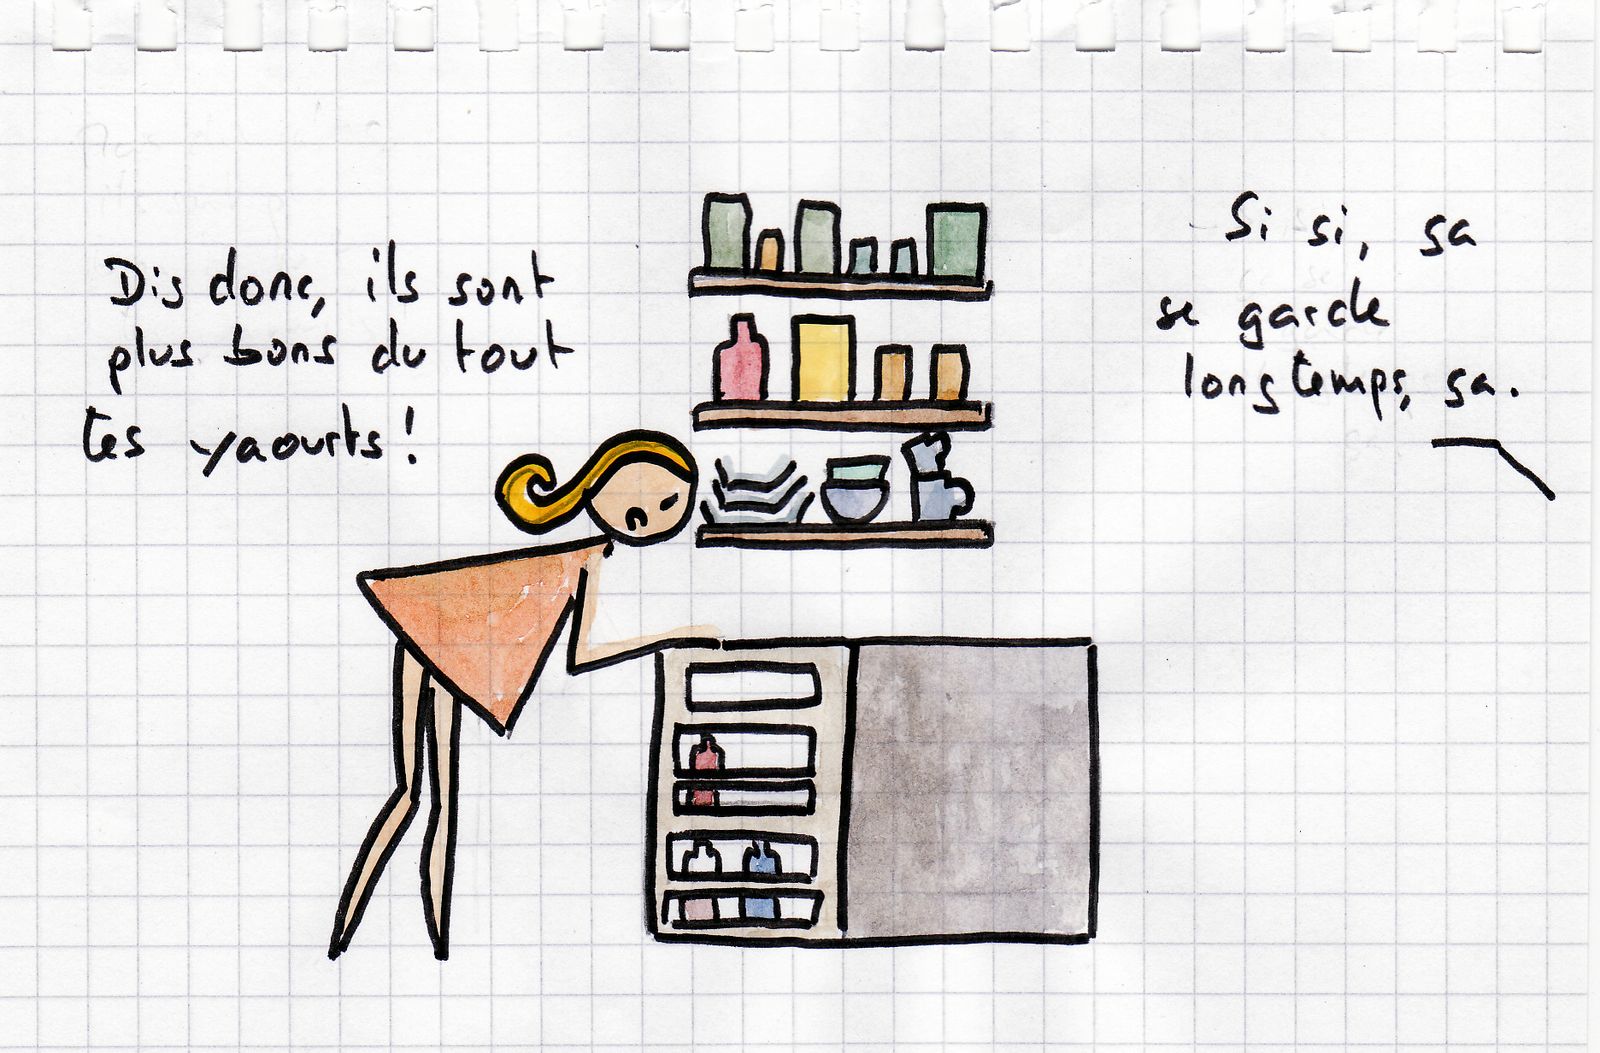 Dis donc, ils sont
plus bons du tout
tes yaourts!
Si si, sa
se garde
longtemps, sa.